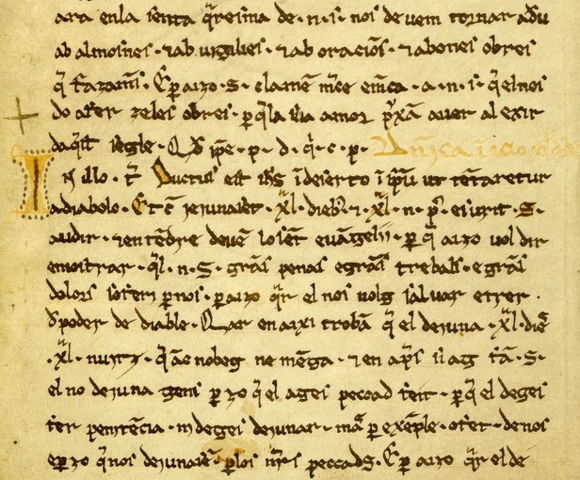 ara enla senta q̄resma de·n·s· nos devem tornar adū
ab almosnes · ⁊ab virgilies · ⁊ab oracios̄ · ⁊abones obres
q̄ fazam̄. E ꝑ aizo ·S· clamē m̄ce em̄ca ·a·n·s· q̄elnos
do afer zeles obres · ꝑ q̄la sua amor p̄xā aver al exir
daq̄st segle · Qd̄ ip̄e ·p· d· q̄· c· p· Dn̄ica
In illo ·t̄· Ductus est ih̄s ī deserto ī sp̄u ut tētaretur
a diabolo · Et c̄ iejunaset ·xl· dieb; ⁊ ·xl· n· p̄· esurit ·S·
audir · ⁊entēdre devē lo sēt evāgelii · ꝑ q̄ aizo vol dir
emostrar · q̄l·n·S· grās penas egrās trebals · egrās
dolors soferi ꝑnos · ꝑaizo q̄r el nos volg salvar etrer ·
d̄ poder de diable · Qar en aixi trobā q̄ el dejuna ·xl· dies̄
·xl· nuitz · q̄ āc nobeg ne mēga · ⁊en ap̄s si ag fā ·S·
el no dejuna gens ꝑ zo q̄ el ages peccad feit · ꝑq̄ el deges
fer penitēcia · ni deges dejunar · mas̄ ꝑ exēple · ofer · denos
eꝑ zo q̄nos dejunasē ꝑlos n̄rs peccads. E ꝑ aizo q̄r el de